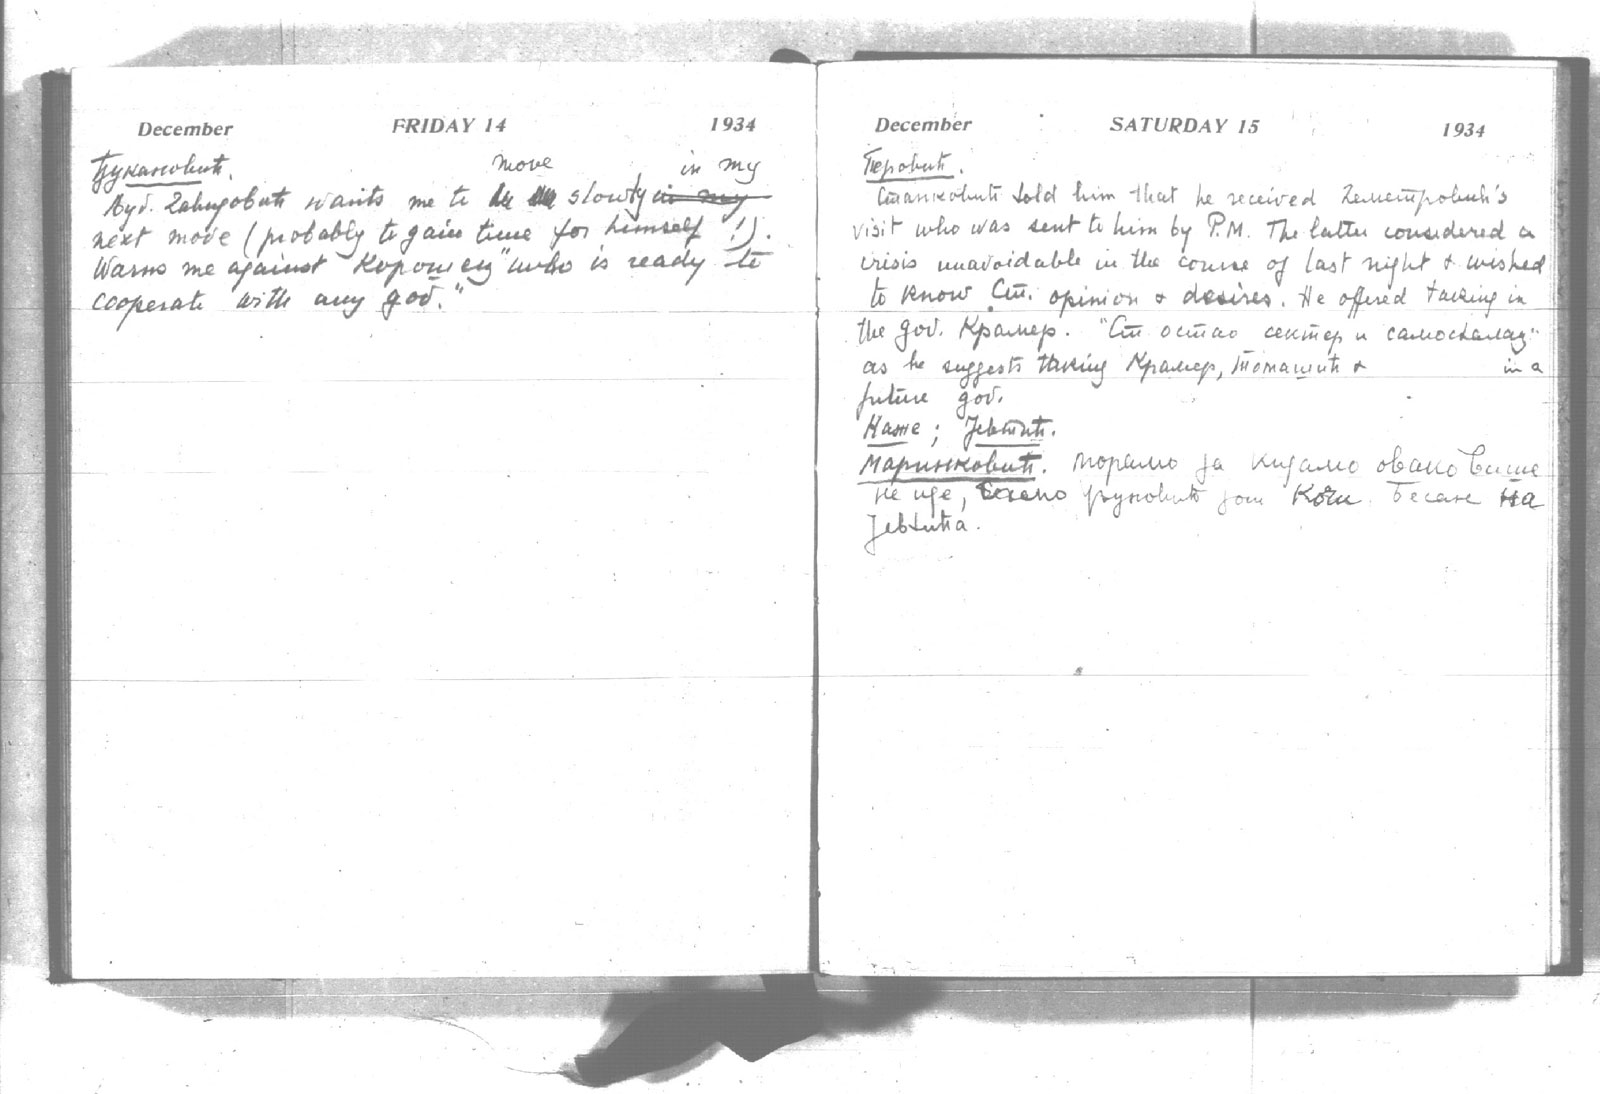 December FRIDAY 14 1934
Ђукановић.
move in my
Љуб. Давидовић wants me to slowly in my
next move (probably to gain time for himself!).
Warns me against "Корошец who is ready to
cooperate with any gov."
December SATURDAY 15 1934
Перовић.
Станковић told him that he received Деметровић's
visit who was sent to him by P.M. The latter considered a
crisis unavoidable in the course of last night & wished
to know Ст. opinion & desires. He offered taking in
the gov. Крамер. "Ст остао сектер и
as he suggests taking Крамер, Томашић & in a
future gov.
Нане; Јевтић.
Маринковић. морамо да кидамо овако више
не иде, још Коће. бесане на
Јевтића.